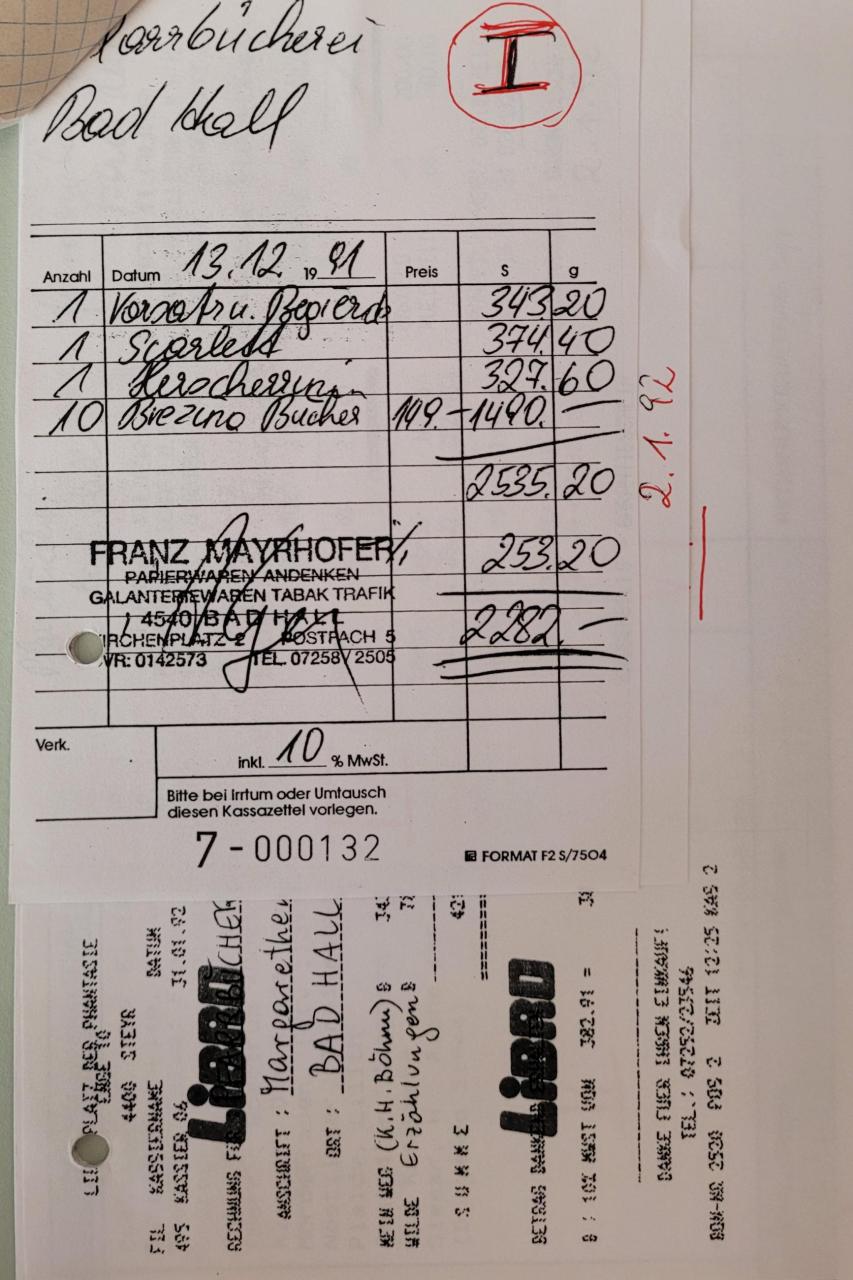 Pfarrbücherei
Bad Hall
I
Anzahl Datum 13.12. 19 91 Preis S g
1 Vorsatz u. Begierde 343.20
1 Scarlett 374.40
1 327.60
10 Brezina Bücher 149.- 1490.—
2535.20
253.20
2282.—
2.1.92
FRANZ MAYRHOFER
PAPIERWAREN ANDENKEN
GALANTERIEWAREN TABAK TRAFIK
4540 BAD HALL
IRCHENPLATZ 2 POSTFACH 5
VR: 0142573 TEL. 07258/2505
Verk.
inkl. 10 % MwSt.
Bitte bei Irrtum oder Umtausch
diesen Kassazettel vorlegen.
7-000132
FORMAT F2 S/7504
PLATZ DER PHANTASIE
ENGE 10
4400 STEYR
FIL KASSIERNAME DATUM
495 KASSIER 06 31.01.92
LiBRO
RECHNUNG
ANSCHRIFT : Margarethen
ORT : BAD HALL
MEIN WEG (K.H. Böhm) B 34
WILDE Erzählungen B 7
SUMME 42
LiBRO
BETRAG
B : 10% MWST VON 382.91 = 3
DANKE FUER IHREN EINKAUF!
TEL.: 07252/23546
BON-NR 2530 POS 2 ZEIT 12:25 KAS 2